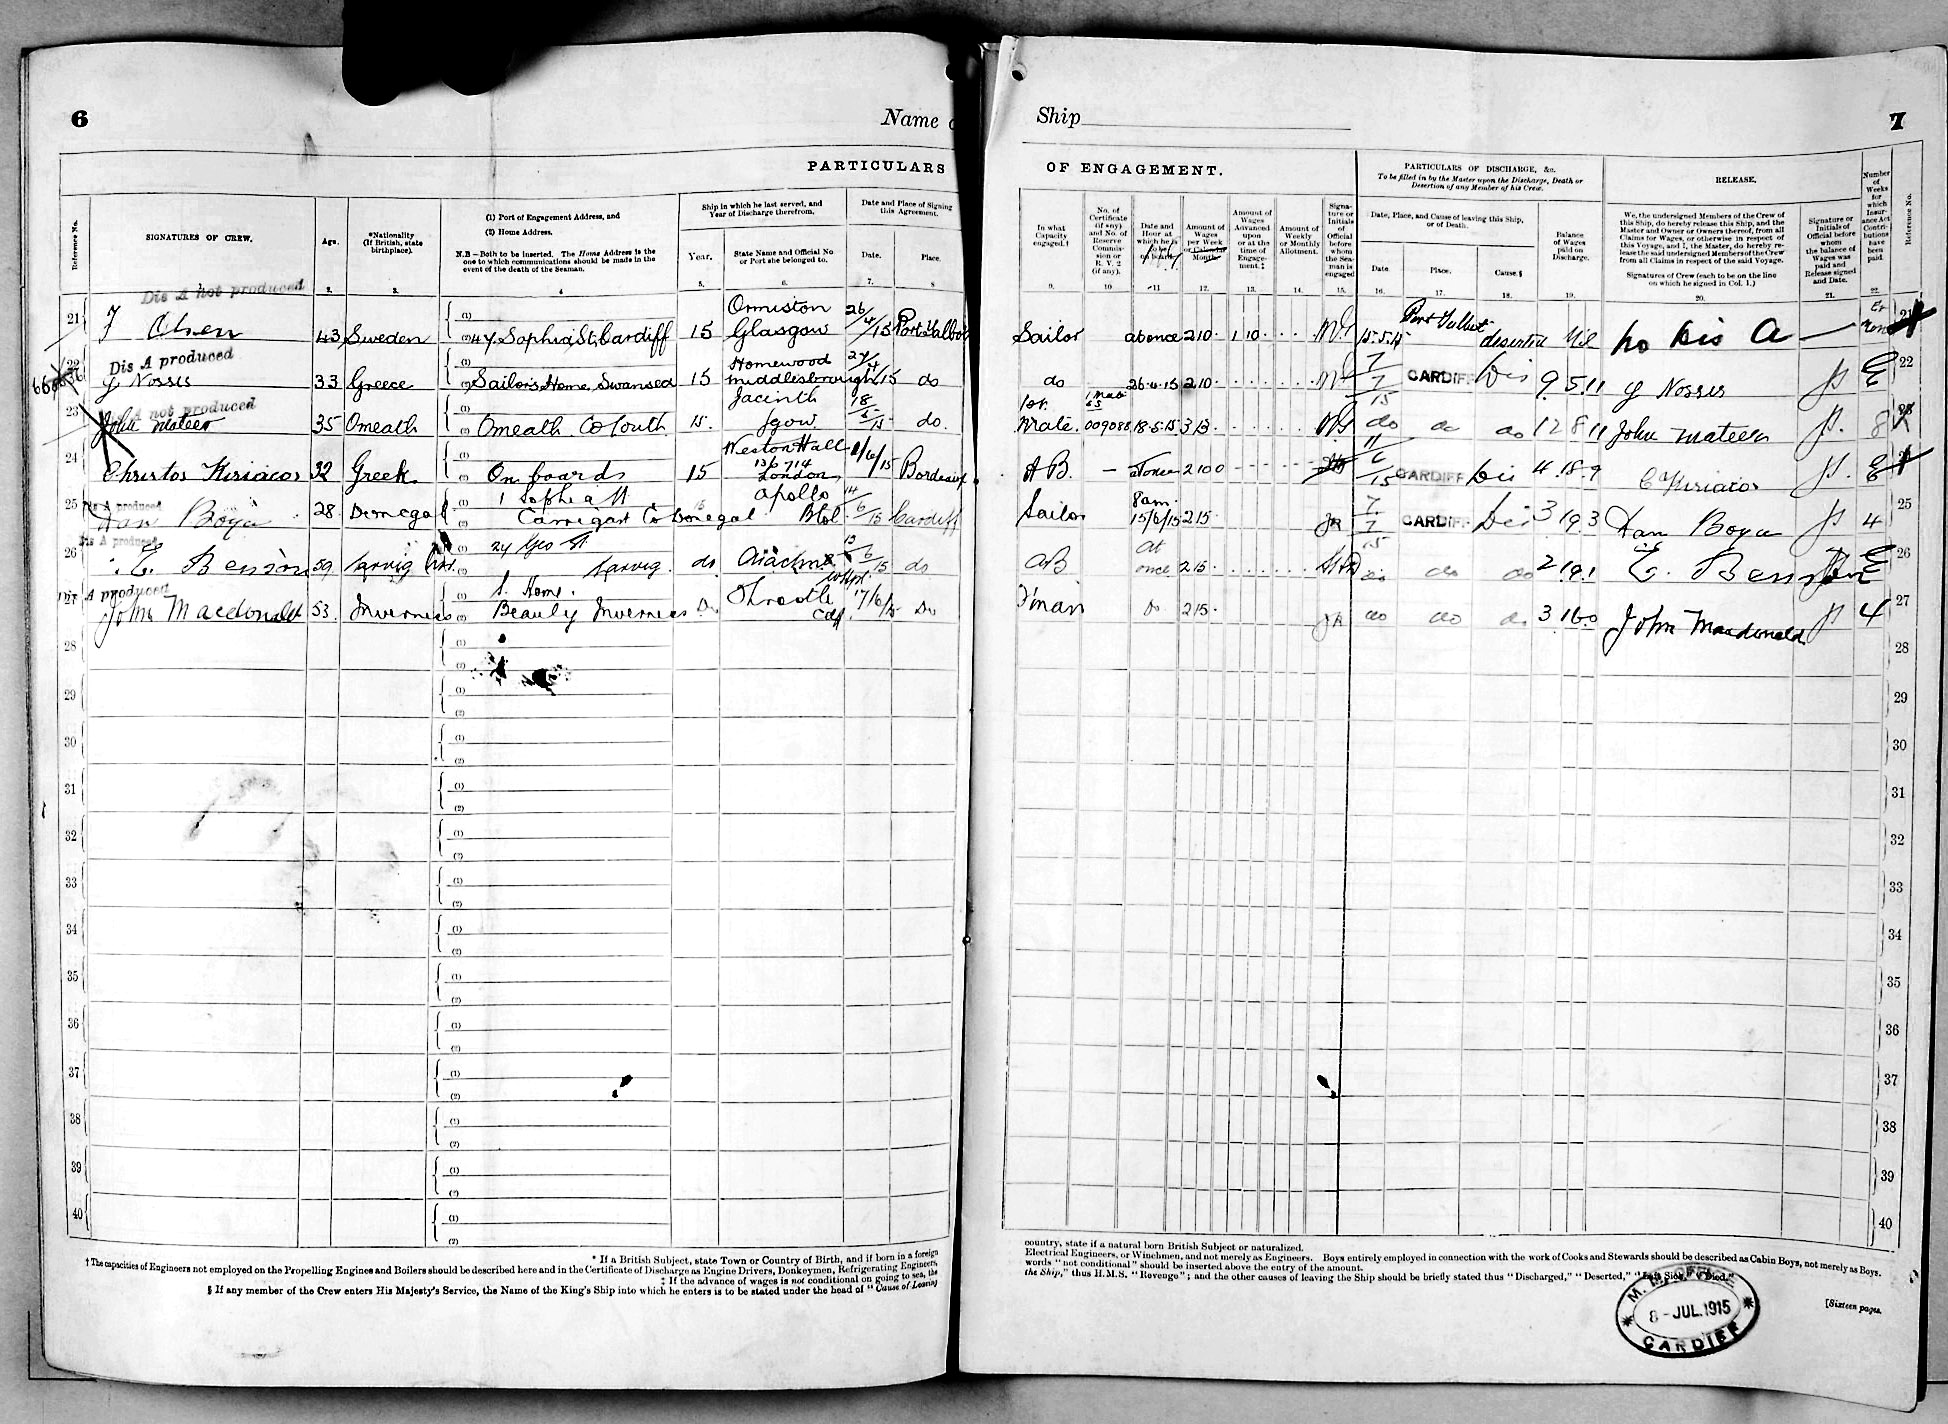 6
Name o
PARTICULARS
Reference No.
SIGNATURES OF CREW.
Age.
*Nationality
(If British, state
birthplace).
(1) Port of Engagement Address, and
(2) Home Address.
N.B.—Both to be inserted. The Home Address is the
one to which communications should be made in the
event of the death of the Seaman.
Ship in which he last served, and
Year of Discharge therefrom.
Year.
State Name and Official No.
or Port she belonged to.
Date and Place of Signing
this Agreement.
Date.
Place.
1. 2. 3. 4 5. 6. 7. 8
Dis A not produced
21 J Olsen 43 Sweden (1) (2) 47 Sophia St, Cardiff 15 Ormiston Glasgow 26/4/15 Port Talbot
Dis A produced
22 Y Nossis 33 Greece (1) (2) Sailors Home, Swansea 15 Homewood Middlesbrough 27/4/15 do
Dis A not produced
23 John Mateer 35 Omeath (1) (2) Omeath Co Louth 15 Jacinth Sgow 18/5/15 do.
24 Christos Kiriacos 32 Greek (1) (2) On board 15 Weston Hall 136714 London 1/6/15 Bordeaux
Dis A produced
25 Dan Boya 28 Donegal (1) 1 Sophia St (2) Carrigart Co Donegal 15 Apollo Btol 14/6/15 Cardiff
Dis A produced
26 E. Benson 59 Larvig Nor. (1) 24 Geo St (2) Larvig do 15/6/15 do
Dis A produced
27 John Macdonald 53. Inverness (1) S. Home. (2) Beauly Inverness Do Throstle Cdf 17/6/15 Do
28 (1) (2)
29 (1) (2)
30 (1) (2)
31 (1) (2)
32 (1) (2)
33 (1) (2)
34 (1) (2)
35 (1) (2)
36 (1) (2)
37 (1) (2)
38 (1) (2)
39 (1) (2)
40 (1) (2)
* If a British Subject, state Town or Country of Birth, and if born in a foreign
† The capacities of Engineers not employed on the Propelling Engines and Boilers should be described here and in the Certificate of Discharge as Engine Drivers, Donkeymen, Refrigerating Engineers,
‡ If the advance of wages is not conditional on going to sea, the
§ If any member of the Crew enters His Majesty's Service, the Name of the King's Ship into which he enters is to be stated under the head of "Cause of Leaving
Ship
7
OF ENGAGEMENT.
PARTICULARS OF DISCHARGE, &c.
To be filled in by the Master upon the Discharge, Death or
Desertion of any Member of his Crew.
RELEASE.
In what
Capacity
engaged.†
No. of
Certificate
(if any)
and No. of
Reserve
Commis-
sion or
R. V. 2
(if any).
Date and
Hour at
which he is
to be
on board.
Amount of
Wages
per Week
or Calendar
Month.
Amount of
Wages
Advanced
upon
or at the
time of
Engage-
ment.‡
Amount of
Weekly
or Monthly
Allotment.
Signa-
ture or
Initials
of
Official
before
whom
the Sea-
man is
engaged
Date, Place, and Cause of leaving this Ship,
or of Death.
Date.
Place.
Cause.§
Balance
of Wages
paid on
Discharge.
We, the undersigned Members of the Crew of
this Ship, do hereby release this Ship, and the
Master and Owner or Owners thereof, from all
Claims for Wages, or otherwise in respect of
this Voyage, and I, the Master, do hereby re-
lease the said undersigned Members of the Crew
from all Claims in respect of the said Voyage.
Signatures of Crew (each to be on the line
on which he signed in Col. 1.)
Signature or
Initials of
Official before
whom
the balance of
Wages was
paid and
Release signed
and Date.
Number
of
Weeks
for
which
Insur-
ance Act
Contri-
butions
have
been
paid.
Reference No.
9. 10 11 12. 13. 14. 15. 16. 17. 18. 19. 20. 21. 22.
Sailor at once 2 10 1 10 15.5.15 Port Talbot deserted Nil No Dis A 21
do 26.4.15 2 10 7/7/15 CARDIFF Dis 9 5 11 Y Nossis E 22
1st. Mate. 1 Mate 009088 18.5.15 3 13 do do do 12 8 11 John Mateer 8 23
A B. — at once 2 10 0 11/6/15 CARDIFF Dis 4.18.9 C Kiriacos E
Sailor 8am. 15/6/15 2 15 7/7/15 CARDIFF Dis 3 19 3 Dan Boya 4 25
AB At once 2 15 do do do 2 19 1 E. Benson E 26
F'man Do 2 15 do do do 3 16 0 John Macdonald 4 27
28
29
30
31
32
33
34
35
36
37
38
39
40
country, state if a natural born British Subject or naturalized.
Electrical Engineers, or Winchmen, and not merely as Engineers. Boys entirely employed in connection with the work of Cooks and Stewards should be described as Cabin Boys, not merely as Boys.
words "not conditional" should be inserted above the entry of the amount.
the Ship," thus H.M.S. "Revenge"; and the other causes of leaving the Ship should be briefly stated thus "Discharged," "Deserted," "Left Sick," "Died."
[Sixteen pages.
M. M. OFFICE
8 - JUL. 1915
CARDIFF